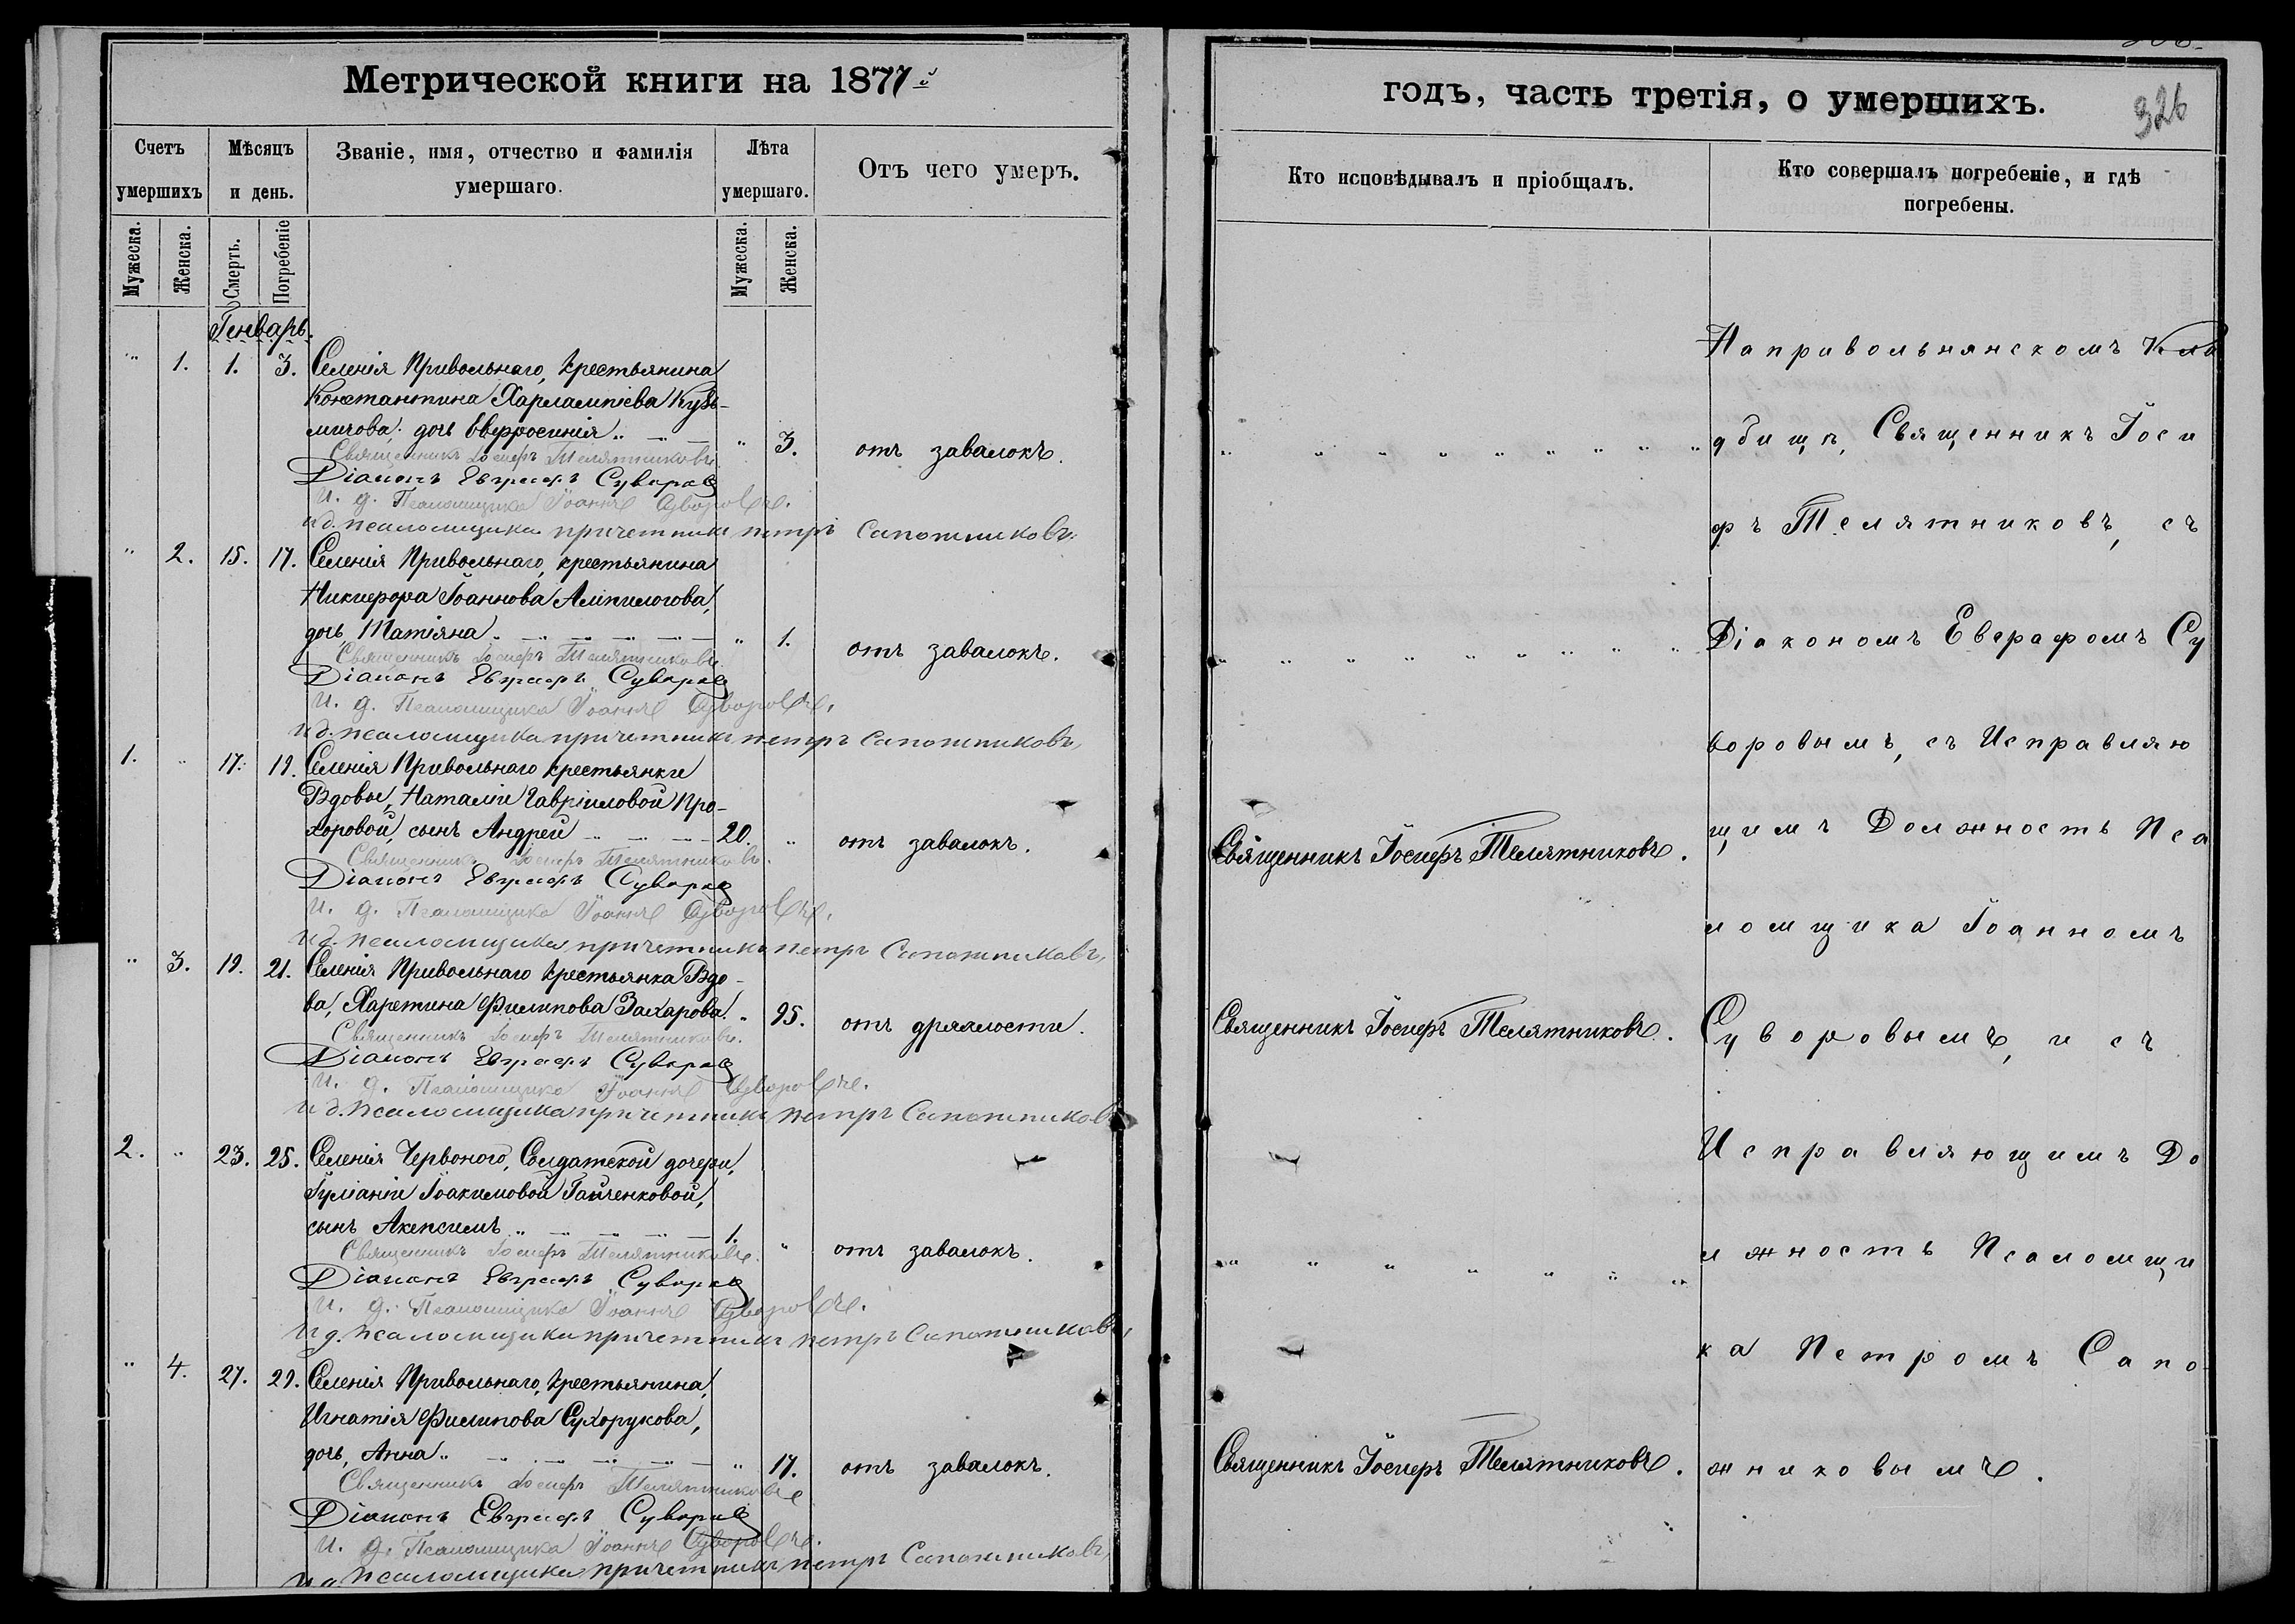 Метрической книги на 1877й
годъ, часть третія, о умершихъ.
326
Счетъ умершихъ
Мѣсяцъ и день.
Званіе, имя, отчество и фамилія умершаго.
Лѣта умершаго.
Отъ чего умеръ.
Кто исповѣдывалъ и пріобщалъ.
Кто совершалъ погребеніе, и гдѣ погребены.
Мужеска.
Женска.
Смерть.
Погребеніе
Мужеска.
Женска.
Генварь.
" 1. 1. 3. Селенія Привольнаго, крестьянина
Константина Харлампіева Кузь-
мичова, дочь Евфросинія " 3. отъ завалокъ.
Священникъ Іосифъ Телятниковъ
Діаконъ Евграфъ Суворов
И. д. Псаломщика Іоаннъ Суворовъ.
и д. псаломщика причетникъ петръ Сапожниковъ.
" 2. 15. 17. Селенія Привольнаго, крестьянина
Никифора Іоаннова Алпилогова,
дочь Татіяна " 1. отъ завалокъ.
Священникъ Іосифъ Телятниковъ
Діаконъ Евграфъ Суворов
И. д. Псаломщика Іоаннъ Суворовъ.
и д. псаломщика причетникъ петръ Сапожниковъ,
1. " 17. 19. Селенія Привольнаго крестьянки
Вдовы, Наталіи Гавріиловой Про-
хоровой, сынъ Андрей 20. " отъ завалокъ. Священникъ Іосифъ Телятниковъ.
Священникъ Іосифъ Телятниковъ.
Діаконъ Евграфъ Суворов
И. д. Псаломщика Іоаннъ Суворовъ.
и д. псаломщика причетникъ петръ Сапожниковъ,
" 3. 19. 21. Селенія Привольнаго крестьянка Вдо-
ва, Харетина Филипова Захарова. " 95. отъ дряхлости. Священникъ Іосифъ Телятниковъ.
Священникъ Іосифъ Телятниковъ.
Діаконъ Евграфъ Суворов
И. д. Псаломщика Іоаннъ Суворовъ.
и д. псаломщика причетникъ петръ Сапожниковъ
2. " 23. 25. Селенія Червоного, Солдатской дочери,
Іуліаніи Іоакимовой Гайченковой,
сынъ Акепсимъ 1. " отъ завалокъ.
Священникъ Іосифъ Телятниковъ.
Діаконъ Евграфъ Суворов
И. д. Псаломщика Іоаннъ Суворовъ.
и д. псаломщика причетникъ петръ Сапожниковъ,
" 4. 27. 29. Селенія Привольнаго, крестьянина,
Игнатія Филипова Сухорукова,
дочь, Анна " 17. отъ завалокъ. Священникъ Іосифъ Телятниковъ.
Священникъ Іосифъ Телятниковъ
Діаконъ Евграфъ Суворов
И. д. Псаломщика Іоаннъ Суворовъ.
и д. псаломщика причетникъ петръ Сапожниковъ,
На привольнянскомъ Кла
дбищѣ, Священникъ Іоси
фъ Телятниковъ, съ
Діакономъ Евграфомъ Су
воровымъ, съ Исправляю
щимъ Должность Пса
ломщика Іоанномъ
Суворовымъ, и съ
Исправляющимъ До
лжность Псаломщи
ка Петромъ Сапо
жниковымъ.